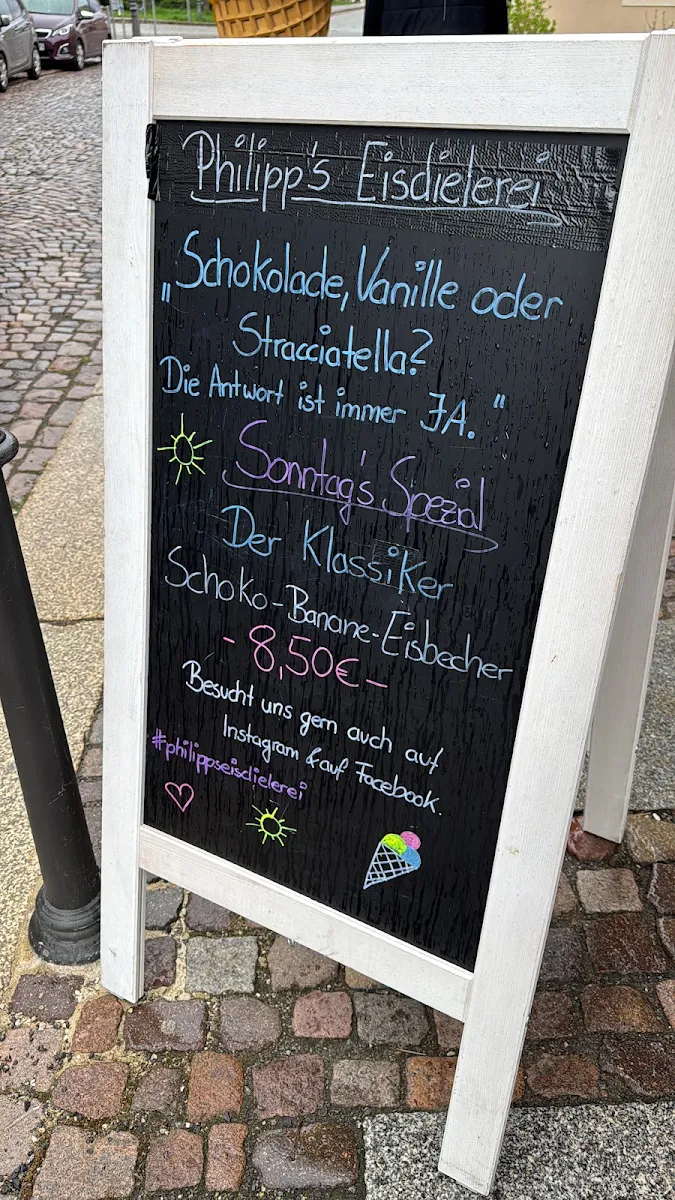 Philipp's Eisdielerei
„Schokolade, Vanille oder
Stracciatella?
Die Antwort ist immer JA."
Sonntag's Spezial
Der Klassiker
Schoko-Banane-Eisbecher
- 8,50€ -
Besucht uns gern auch auf
Instagram & auf Facebook.
#philippseisdielerei